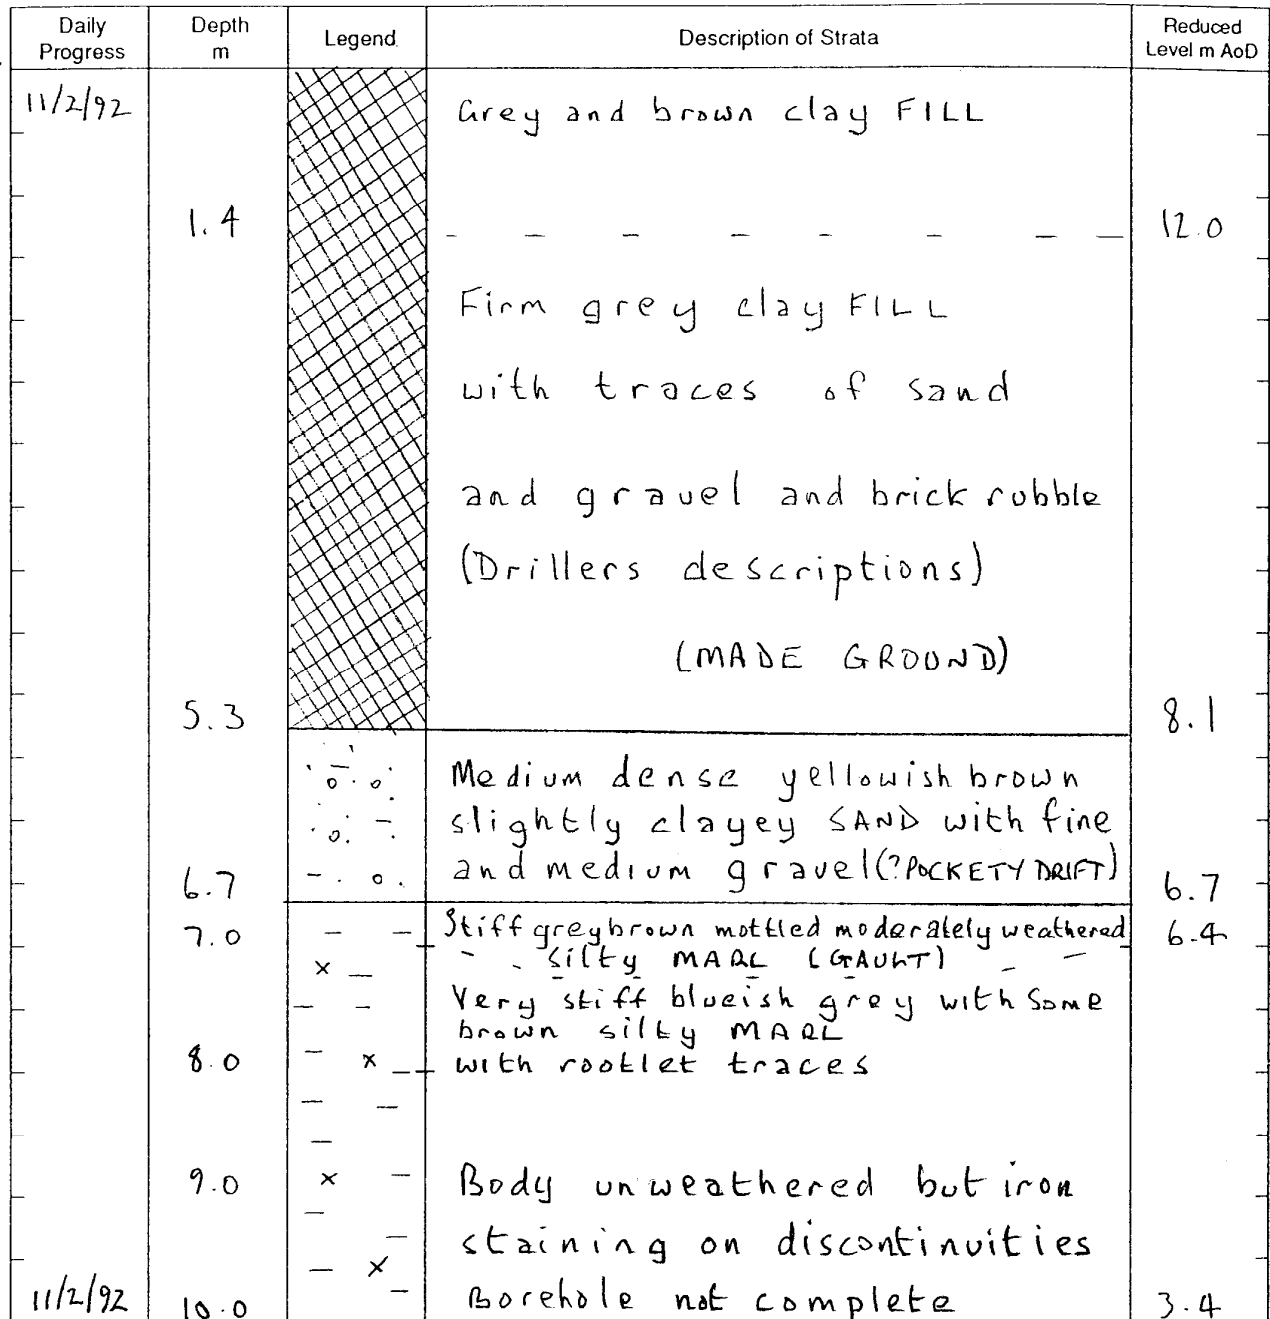 Daily Progress Depth m Legend Description of Strata Reduced Level m AoD
11/2/92 Grey and brown clay FILL
1.4 12.0
Firm grey clay FILL
with traces of sand
and gravel and brick rubble
(Drillers descriptions)
(MADE GROUND)
5.3 8.1
Medium dense yellowish brown
slightly clayey SAND with fine
and medium gravel (?POCKETY DRIFT)
6.7 6.7
7.0 Stiff greybrown mottled moderately weathered 6.4
silty MARL (GAULT)
Very stiff blueish grey with some
brown silty MARL
8.0 with rootlet traces
9.0 Body unweathered but iron
staining on discontinuities
11/2/92 10.0 Borehole not complete 3.4